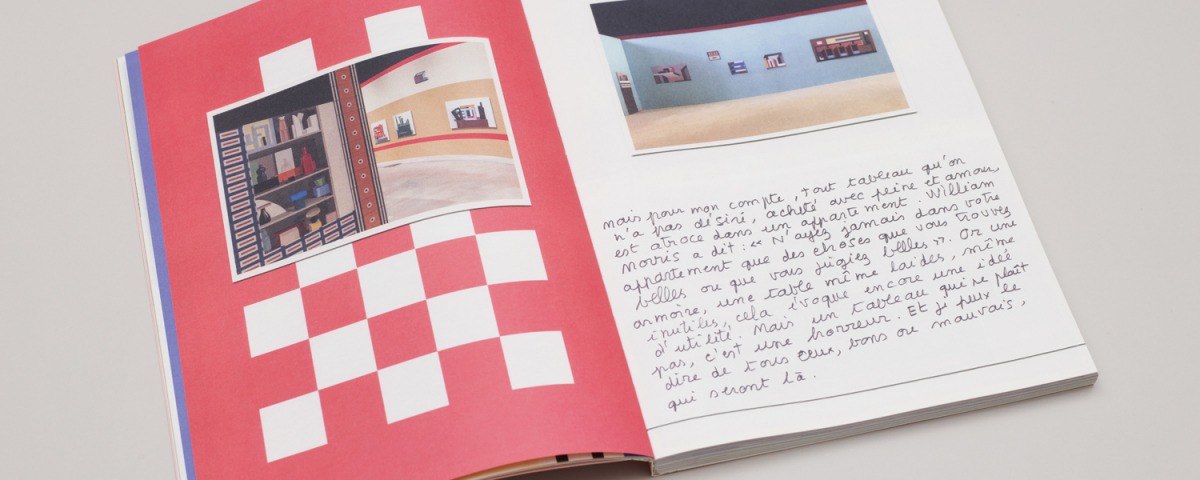 mais pour mon compte, tout tableau qu'on
n'a pas désiré, acheté avec peine et amour,
est atroce dans un appartement. William
Morris a dit : « N'ayez jamais dans votre
appartement que des choses que vous trouvez
belles ou que vous jugiez belles ». Or une
armoire, une table même laides, même
inutiles, cela évoque encore une idée
d'utilité. Mais un tableau qui ne plaît
pas, c'est une horreur. Et je peux le
dire de tous ceux, bons ou mauvais,
qui seront là.